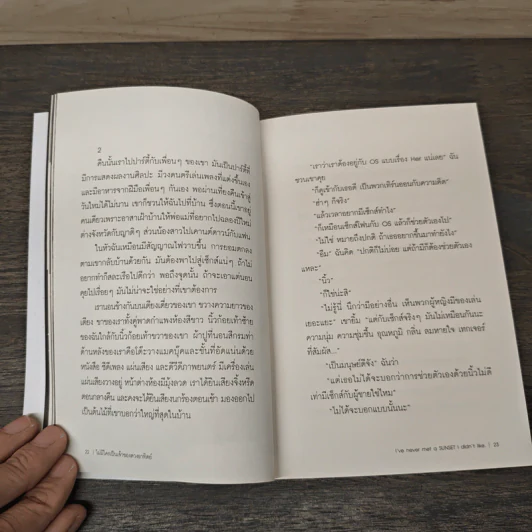 2
คืนนั้นเราไปปาร์ตี้กับเพื่อนๆ ของเขา มันเป็นปาร์ตี้ที่
มีการแสดงผลงานศิลปะ มีวงดนตรีเล่นเพลงที่แต่งขึ้นเอง
และมีอาหารจากฝีมือเพื่อนๆ กันเอง พอผ่านเที่ยงคืนเข้าสู่
วันใหม่ได้ไม่นาน เขาก็ชวนให้ฉันไปที่บ้าน ซึ่งตอนนี้เขาอยู่
คนเดียวเพราะอาสาเฝ้าบ้านให้พ่อแม่ที่อยากไปฉลองปีใหม่
ต่างจังหวัดกับญาติๆ ส่วนน้องสาวไปเคานต์ดาวน์กับแฟน
ในหัวฉันเหมือนมีสัญญาณไฟวาบขึ้น การยอมตกลง
ตามเขากลับบ้านด้วยกัน มันต้องพาไปสู่เซ็กส์แน่ๆ ถ้าไม่
อยากทำก็สละเรือไปดีกว่า พอถึงจุดนั้น ถ้าจะเอาแต่นอน
คุยไปเรื่อยๆ มันไม่น่าจะใช่อย่างที่เขาต้องการ
เรานอนข้างกันบนเตียงเดี่ยวของเขา ขวางความยาวของ
เตียง ขาของเราทั้งคู่พาดกำแพงห้องสีขาว นิ้วก้อยเท้าซ้าย
ของฉันใกล้กับนิ้วก้อยเท้าขวาของเขา ผ้าปูที่นอนสีกรมท่า
ด้านหลังของเราคือโต๊ะวางแมคบุ๊คและชั้นที่อัดแน่นด้วย
หนังสือ ซีดีเพลง แผ่นเสียง และดีวีดีภาพยนตร์ มีเครื่องเล่น
แผ่นเสียงวางอยู่ หน้าต่างห้องมีมุ้งลวด เราได้ยินเสียงจิ้งหรีด
ตอนกลางคืน และคงจะได้ยินเสียงนกร้องตอนเช้า มองออกไป
เป็นต้นไม้ที่เขาบอกว่าใหญ่ที่สุดในบ้าน
| ไม่มีใครเป็นเจ้าของดวงอาทิตย์
"เราว่าเราต้องอยู่กับ OS แบบเรื่อง Her แน่เลย" ฉัน
ชวนเขาคุย
"ก็ดูเข้ากับเธอดี เป็นพวกเทิร์นออนกับความคิด"
"ฮ่าๆ ก็จริง"
"แล้วเวลาอยากมีเซ็กส์ทำไง"
"ก็เหมือนเซ็กส์โฟนกับ OS แล้วก็ช่วยตัวเองไป"
"ไม่ใช่ หมายถึงปกติ ถ้าเธออยากขึ้นมาทำยังไง"
"อืม" ฉันคิด "ปกติก็ไม่บ่อย แต่ถ้ามีก็ต้องช่วยตัวเอง
แหละ"
"นิ้ว"
"ก็ใช่น่ะสิ"
"ไม่รู้นี่ นึกว่ามีอย่างอื่น เห็นพวกผู้หญิงมีของเล่น
เยอะแยะ" เขายิ้ม "แต่กับเซ็กส์จริงๆ มันไม่เหมือนกันนะ
ความนุ่ม ความชุ่มชื้น อุณหภูมิ กลิ่น ลมหายใจ เทกเจอร์
ที่สัมผัส..."
"เป็นมนุษย์ดีจัง" ฉันว่า
"แต่เธอไม่ได้จะบอกว่าการช่วยตัวเองด้วยนิ้วไม่ดี
เท่ามีเซ็กส์กับผู้ชายใช่ไหม"
"ไม่ได้จะบอกแบบนั้นนะ"
I've never met a SUNSET I didn't like. | 23